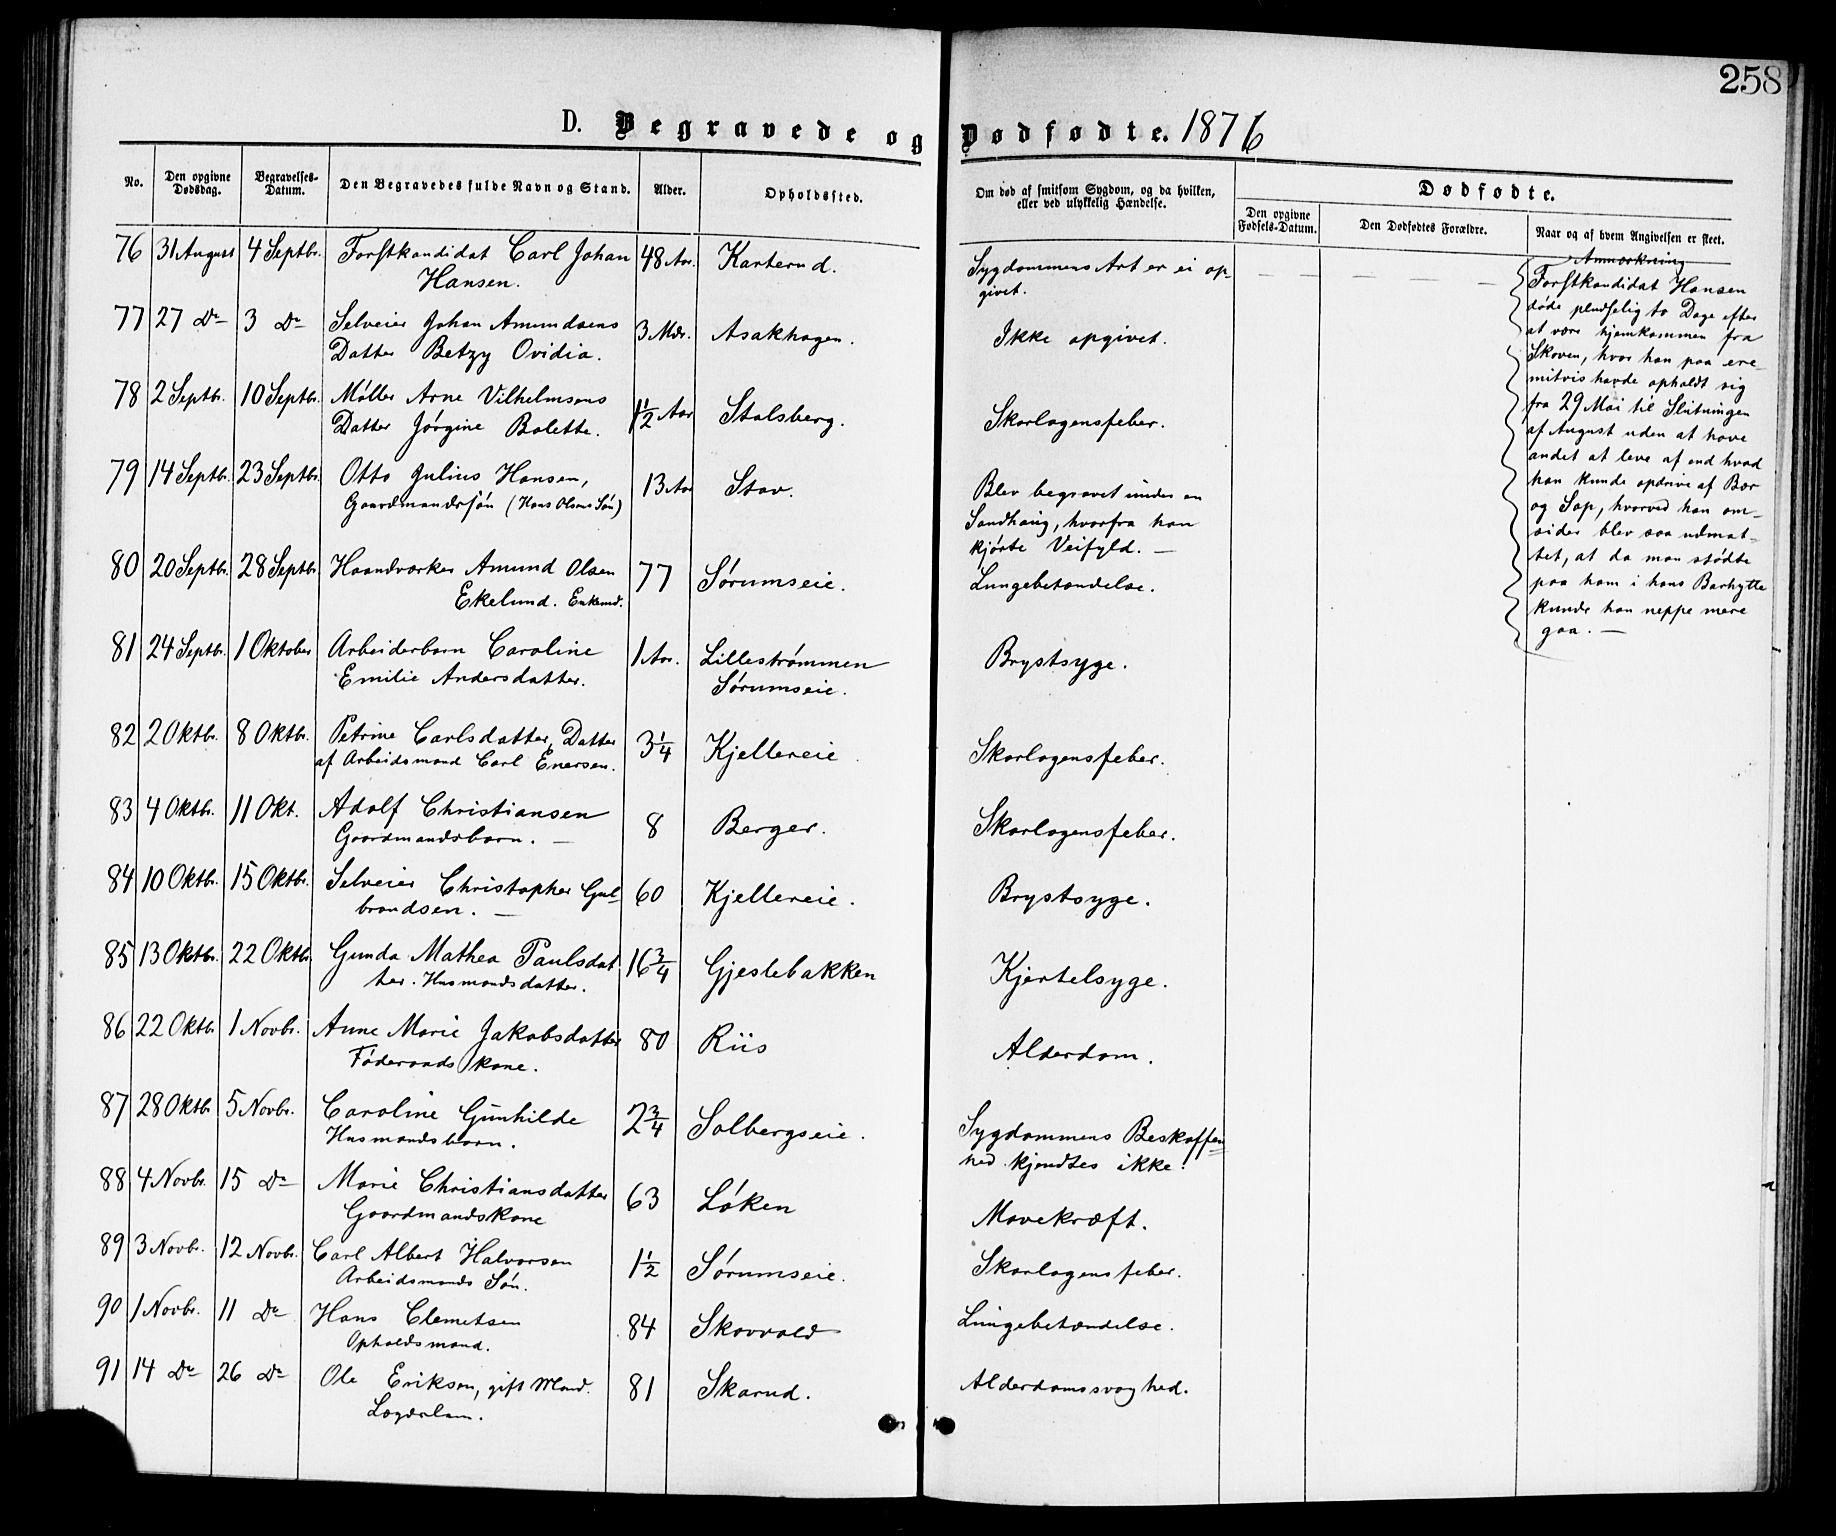 258
D. Begravede og Dødfødte. 1876
No.
Den opgivne Dødsdag.
Begravelses-Datum.
Den Begravedes fulde Navn og Stand.
Alder.
Opholdssted.
Om død af smitsom Sygdom, og da hvilken,
eller ved ulykkelig Hændelse.
Dødfødte.
Den opgivne Fødsels-Datum.
Den Dødfødtes Forældre.
Naar og af hvem Angivelsen er skeet.
76 31 August 4 Septbr. Forstkandidat Carl Johan 48 Aar. Karterud. Sygdommens Art er ei op-
Hansen. givet.
77 27 Do 3 Do Selveier Johan Amundsens 3 Mdr. Asakhagen. Ikke opgivet.
Datter Betzy Ovidia.
78 2 Septbr. 10 Septbr. Møller Arne Vilhelmsens 1½ Aar Stalsberg. Skarlagensfeber.
Datter Jørgine Bolette.
79 14 Septbr. 23 Septbr. Otto Julius Hansen, 13 Aar Stav. Blev begravet under en
Gaardmandssøn (Hans Olsens Søn) Sandhaug, hvorfra han
kjørte Veifyld. —
80 20 Septbr. 28 Septbr. Haandværker Amund Olsen 77 Sørumseie. Lungebetændelse.
Ekelund. Enkemd.
81 24 Septbr. 1 Oktober Arbeiderbarn Caroline 1 Aar. Lillestrømmen Brystsyge.
Emilie Andersdatter. Sørumseie.
82 2 Oktbr. 8 Oktbr. Petrine Carlsdatter, Datter 3¼ Kjellereie Skarlagensfeber.
af Arbeidsmand Carl Enersen.
83 4 Oktbr. 11 Okt. Adolf Christiansen 8 Berger. Skarlagensfeber.
Gaardmandsbarn. —
84 10 Oktbr. 15 Oktbr. Selveier Christopher Gul- 60 Kjellereie. Brystsyge.
brandsen. —
85 13 Oktbr. 22 Oktbr. Gunda Mathea Paulsdat 16¾ Gjestebakken Kjertelsyge.
ter. Husmandsdatter.
86 22 Oktbr 1 Novbr. Anne Marie Jakobsdatter 80 Riis Alderdom.
Føderaadskone.
87 28 Oktbr 5 Novbr. Caroline Gunhilde 2¾ Solbergseie. Sygdommens Beskaffen
Husmandsbarn. hed kjendtes ikke.
88 4 Novbr. 15 Do Marie Christiansdatter 63 Løken Mavekræft.
Gaardmandskone
89 3 Novbr. 12 Novbr. Carl Albert Halvorsen 1½ Sørumseie. Skarlagensfeber.
Arbeidsmands Søn.
90 1 Novbr. 11 Do Hans Clemetsen 84 Skovvold Lungebetændelse.
Opholdsmand.
91 14 Do 26 Do Ole Eriksen, gift Mand. 81 Skarud. Alderdomssvaghed.
Lægdslem.
Anmærkning
Forstkandidat Hansen
døde pludselig to Dage efter
at være hjemkommen fra
Skoven, hvor han paa ere-
mitvis havde opholdt sig
fra 29 Mai til Slutningen
af August uden at have
andet at leve af end hvad
han kunde opdrive af Bær
og Sop, hvorved han om-
sider blev saa udmat-
tet, at da man stødte
paa ham i hans Barhytte
kunde han neppe mere
gaa. —